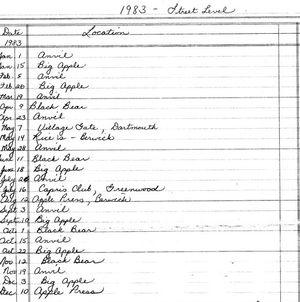 1983 - Street Level
Date Location
1983
Jan 1 Anvil
Jan 15 Big Apple
Feb. 5 Anvil
Feb. 26 Big Apple
Mar 19 Anvil
Apr 9 Black Bear
Apr 23 Anvil
May 7 Village Gate, Dartmouth
May 14 Rice's - Berwick
May 28 Anvil
June 11 Black Bear
June 18 Big Apple
July 2 Anvil
July 16 Capris Club, Greenwood
Aug 12 Apple Press,
Sept 3 Anvil
Sept. 10 Big Apple
Oct 1 Black Bear
Oct 15 Anvil
Oct 22 Big Apple
Nov 12 Black Bear
Nov 19 Anvil
Dec 3 Big Apple
Dec 10 Apple Press